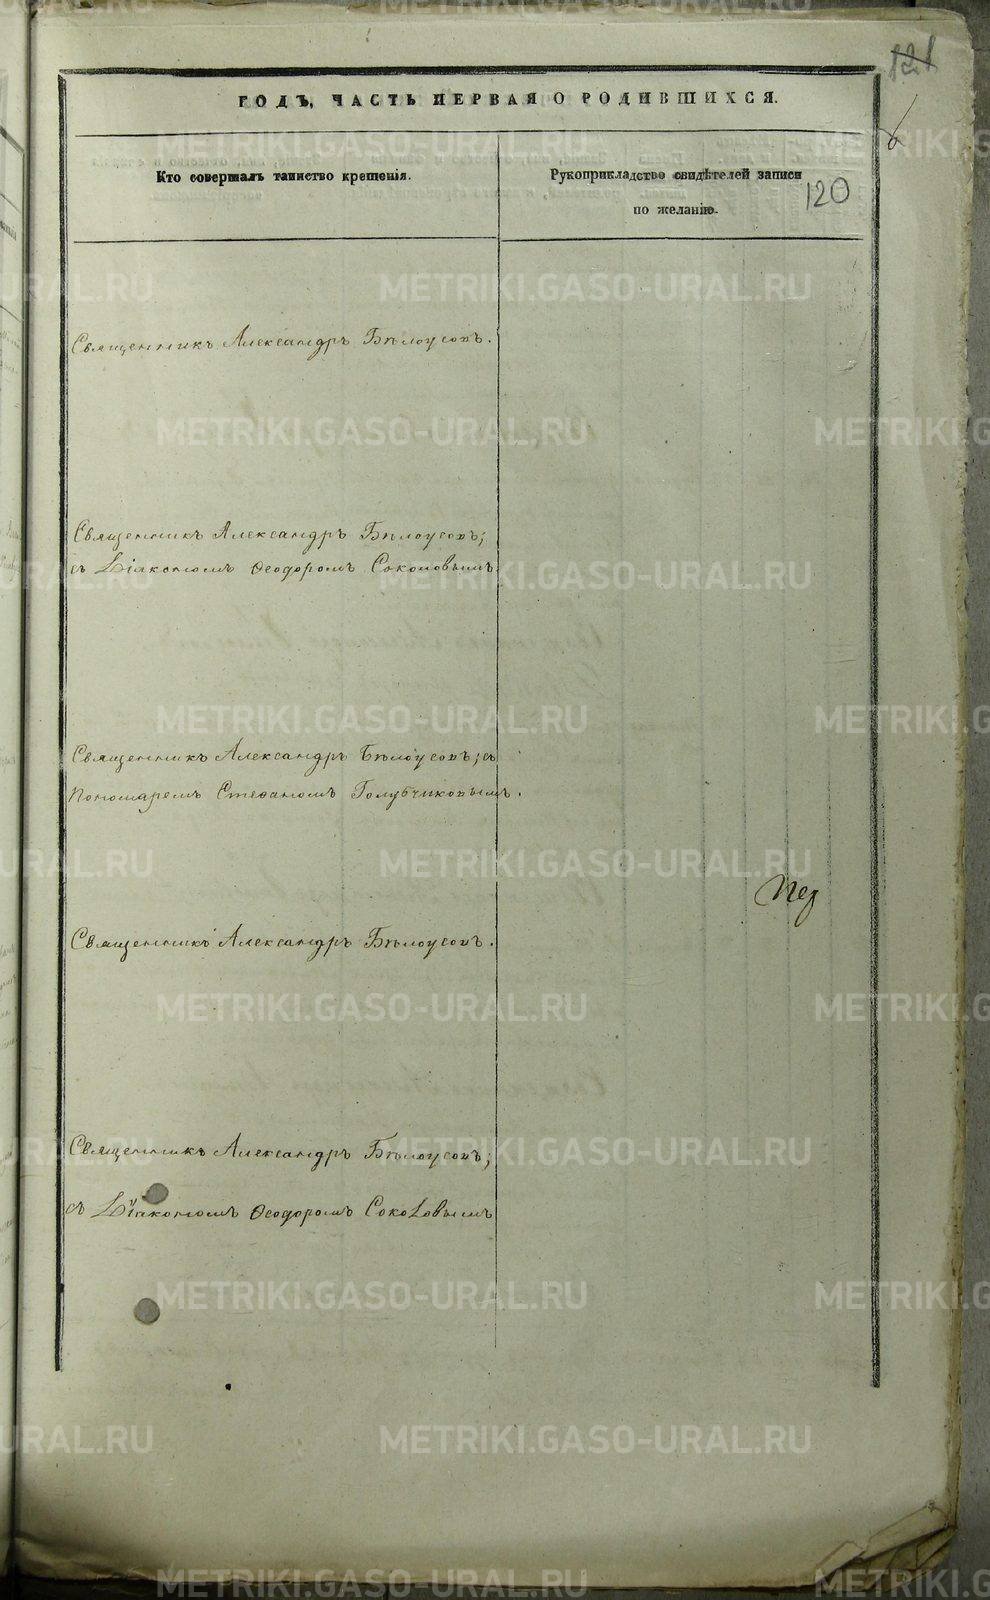 121
ГОДЪ, ЧАСТЬ ПЕРВАЯ О РОДИВШИХСЯ.
Кто совершалъ таинство крещенія.
Рукоприкладство свидѣтелей записи
по желанію.
120
Священникъ Александръ Бѣлоусовъ.
Священникъ Александръ Бѣлоусовъ;
съ Діакономъ Ѳеодоромъ Соколовымъ
Священникъ Александръ Бѣлоусовъ; съ
Пономаремъ Стефаномъ Голубчиковымъ.
Священникъ Александръ Бѣлоусовъ.
Священникъ Александръ Бѣлоусовъ;
съ Діакономъ Ѳеодоромъ Соколовымъ
METRIKI.GASO-URAL.RU